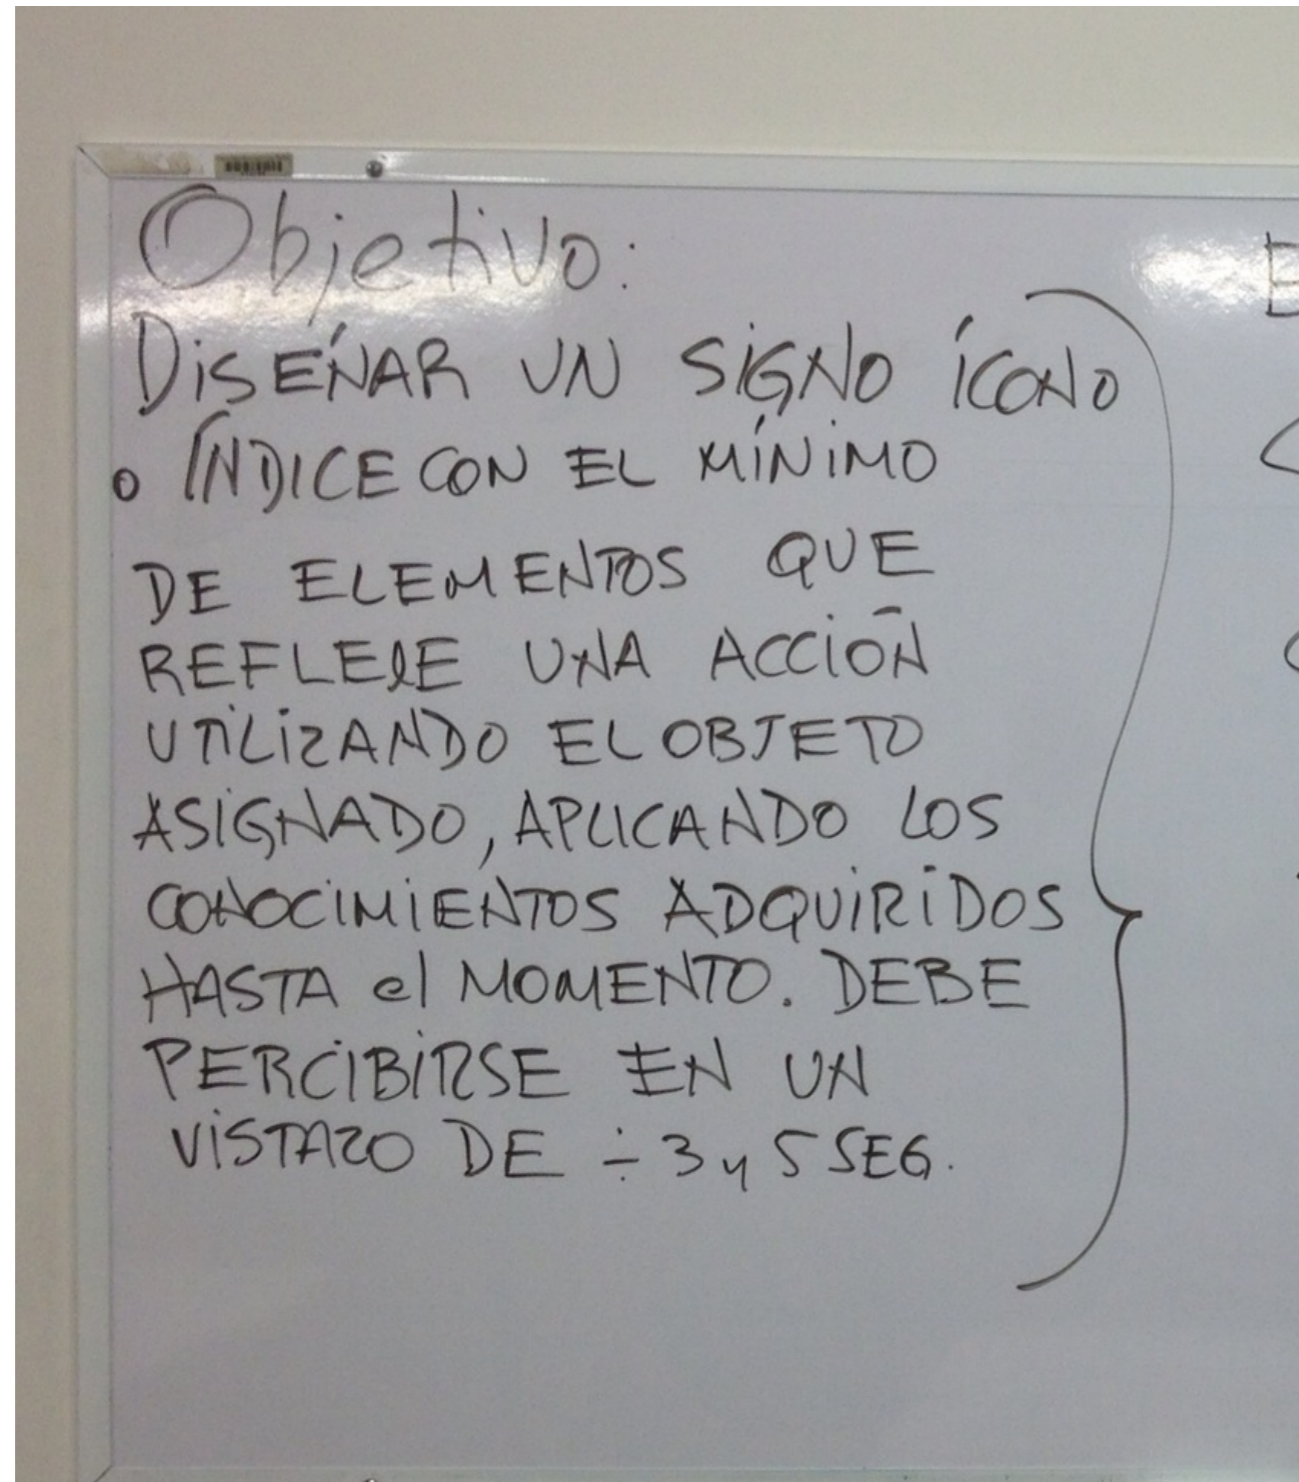 Objetivo:
DISEÑAR UN SIGNO ÍCONO
o ÍNDICE CON EL MÍNIMO
DE ELEMENTOS QUE
REFLEJE UNA ACCIÓN
UTILIZANDO EL OBJETO
ASIGNADO, APLICANDO LOS
CONOCIMIENTOS ADQUIRIDOS
HASTA el MOMENTO. DEBE
PERCIBIRSE EN UN
VISTAZO DE ÷ 3 y 5 SEG.